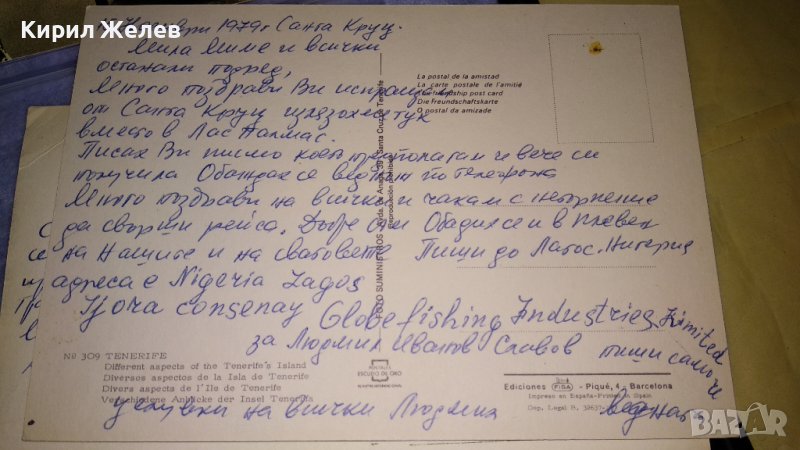 Кирил Желев
1979 г Санта Круц.
Мила Миме и всички
останали подред,
Много поздрави Ви изпращам
от Санта Круц
вместо в Лас Палмас.
Писах Ви писмо което предполагам че вече си
получила Обаждах се веднъж по телефона
Много поздрави на всички и чакам с нетърпение
да свърши рейса. Добре ги Обадих се и в Плевен
на Нашите и на сватовете Пиши до Лагос. Нигерия
адреса е Nigeria Lagos
Globe fishing Industries Limited
за Людмил Иванов Славов пиши само че
веднага
целувки на всички Людмил
La postal de la amistad
La carte postale de l'amitié
Friendship post card
Die Freundschaftskarte
O postal da amizade
FOTO SUMINISTROS - Avda. de Anaga, 39 - Santa Cruz de Tenerife
Reproducción prohibida
Nº 309 TENERIFE
Different aspects of the Tenerife's Island
Diversos aspectos de la Isla de Tenerife
Divers aspects de l'Ile de Tenerife
Verschiedene Anblicke der Insel Tenerifa
POSTALES
ESCUDO DE ORO
Ediciones FISA - Piqué, 4 - Barcelona
Impreso en España-Printed in Spain
Dep. Legal B. 32637
BAZAR
bazar.bg